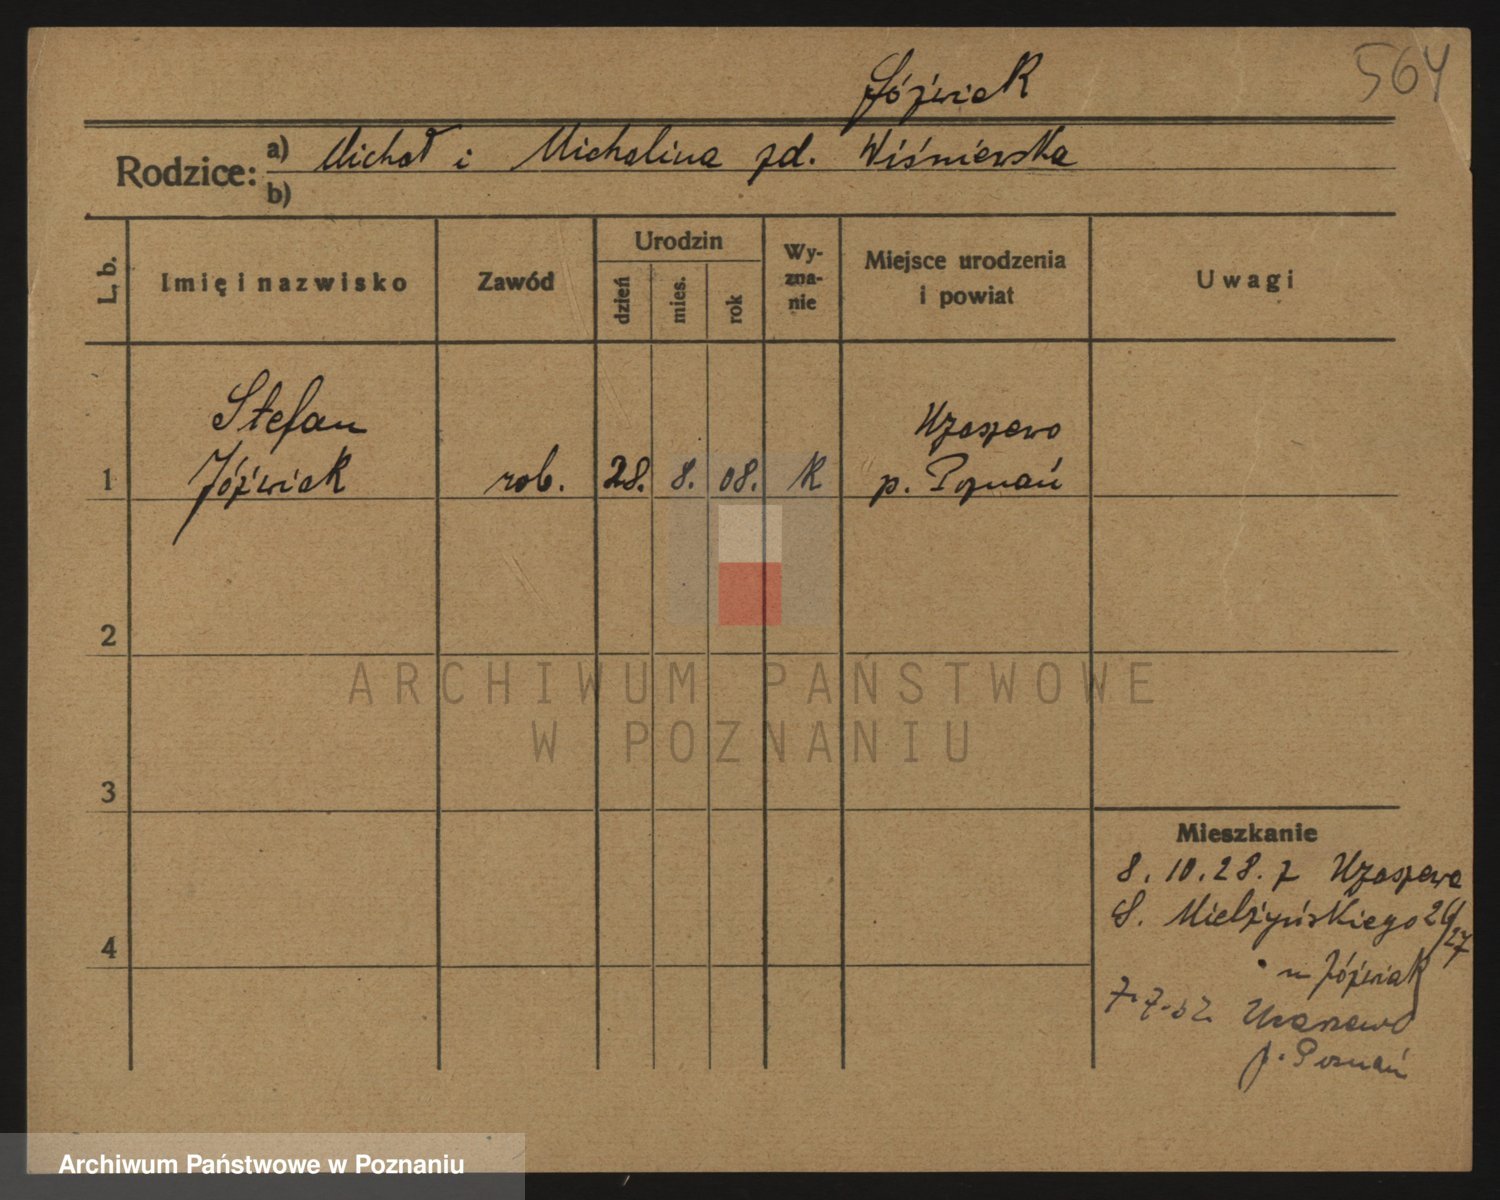 Jóźwiak
564
Rodzice: a) Michał i Michalina zd. Wiśniewska
b)
L. b.
Imię i nazwisko
Zawód
Urodzin
dzień
mies.
rok
Wy-
zna-
nie
Miejsce urodzenia
i powiat
Uwagi
Stefan
Uzaszewo
1 Jóźwiak rob. 28. 8. 08. K p. Poznań
2
ARCHIWUM PAŃSTWOWE
W POZNANIU
3
Mieszkanie
8. 10. 28. z Uzaszewa
S. Mielżyńskiego 26/27
4
u Jóźwiak
7.7.32 Uzaszewo
p. Poznań
Archiwum Państwowe w Poznaniu